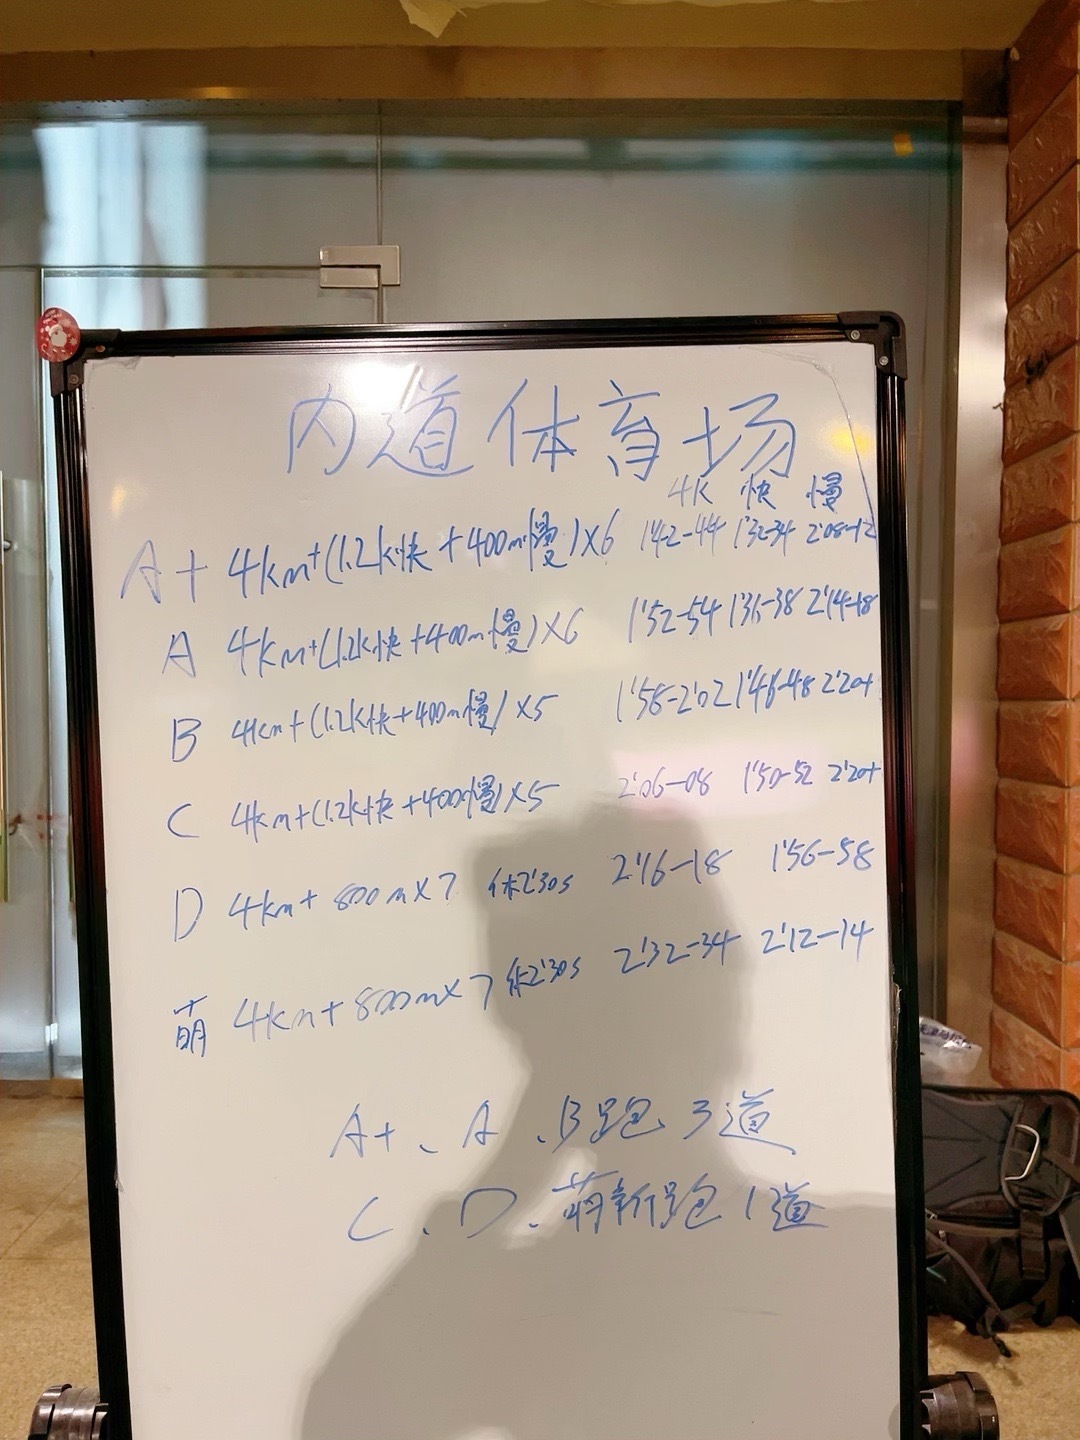 内道体育场
4K 快 慢
A+ 4km+(1.2K快+400m慢)×6 1'42-44 1'32-34 2'08-12
A 4km+(1.2K快+400m慢)×6 1'52-54 2'14-18
B 4km+(1.2K快+400m慢)×5 1'58-2'02 1'46-48 2'20+
C 4km+(1.2K快+400m慢)×5 2'06-08 1'50-52 2'20+
D 4km+800m×7 休2'30s 2'16-18 1'56-58
萌 4km+800m×7 休2'30s 2'32-34 2'12-14
A+、A、B跑3道
C、D、萌新跑1道